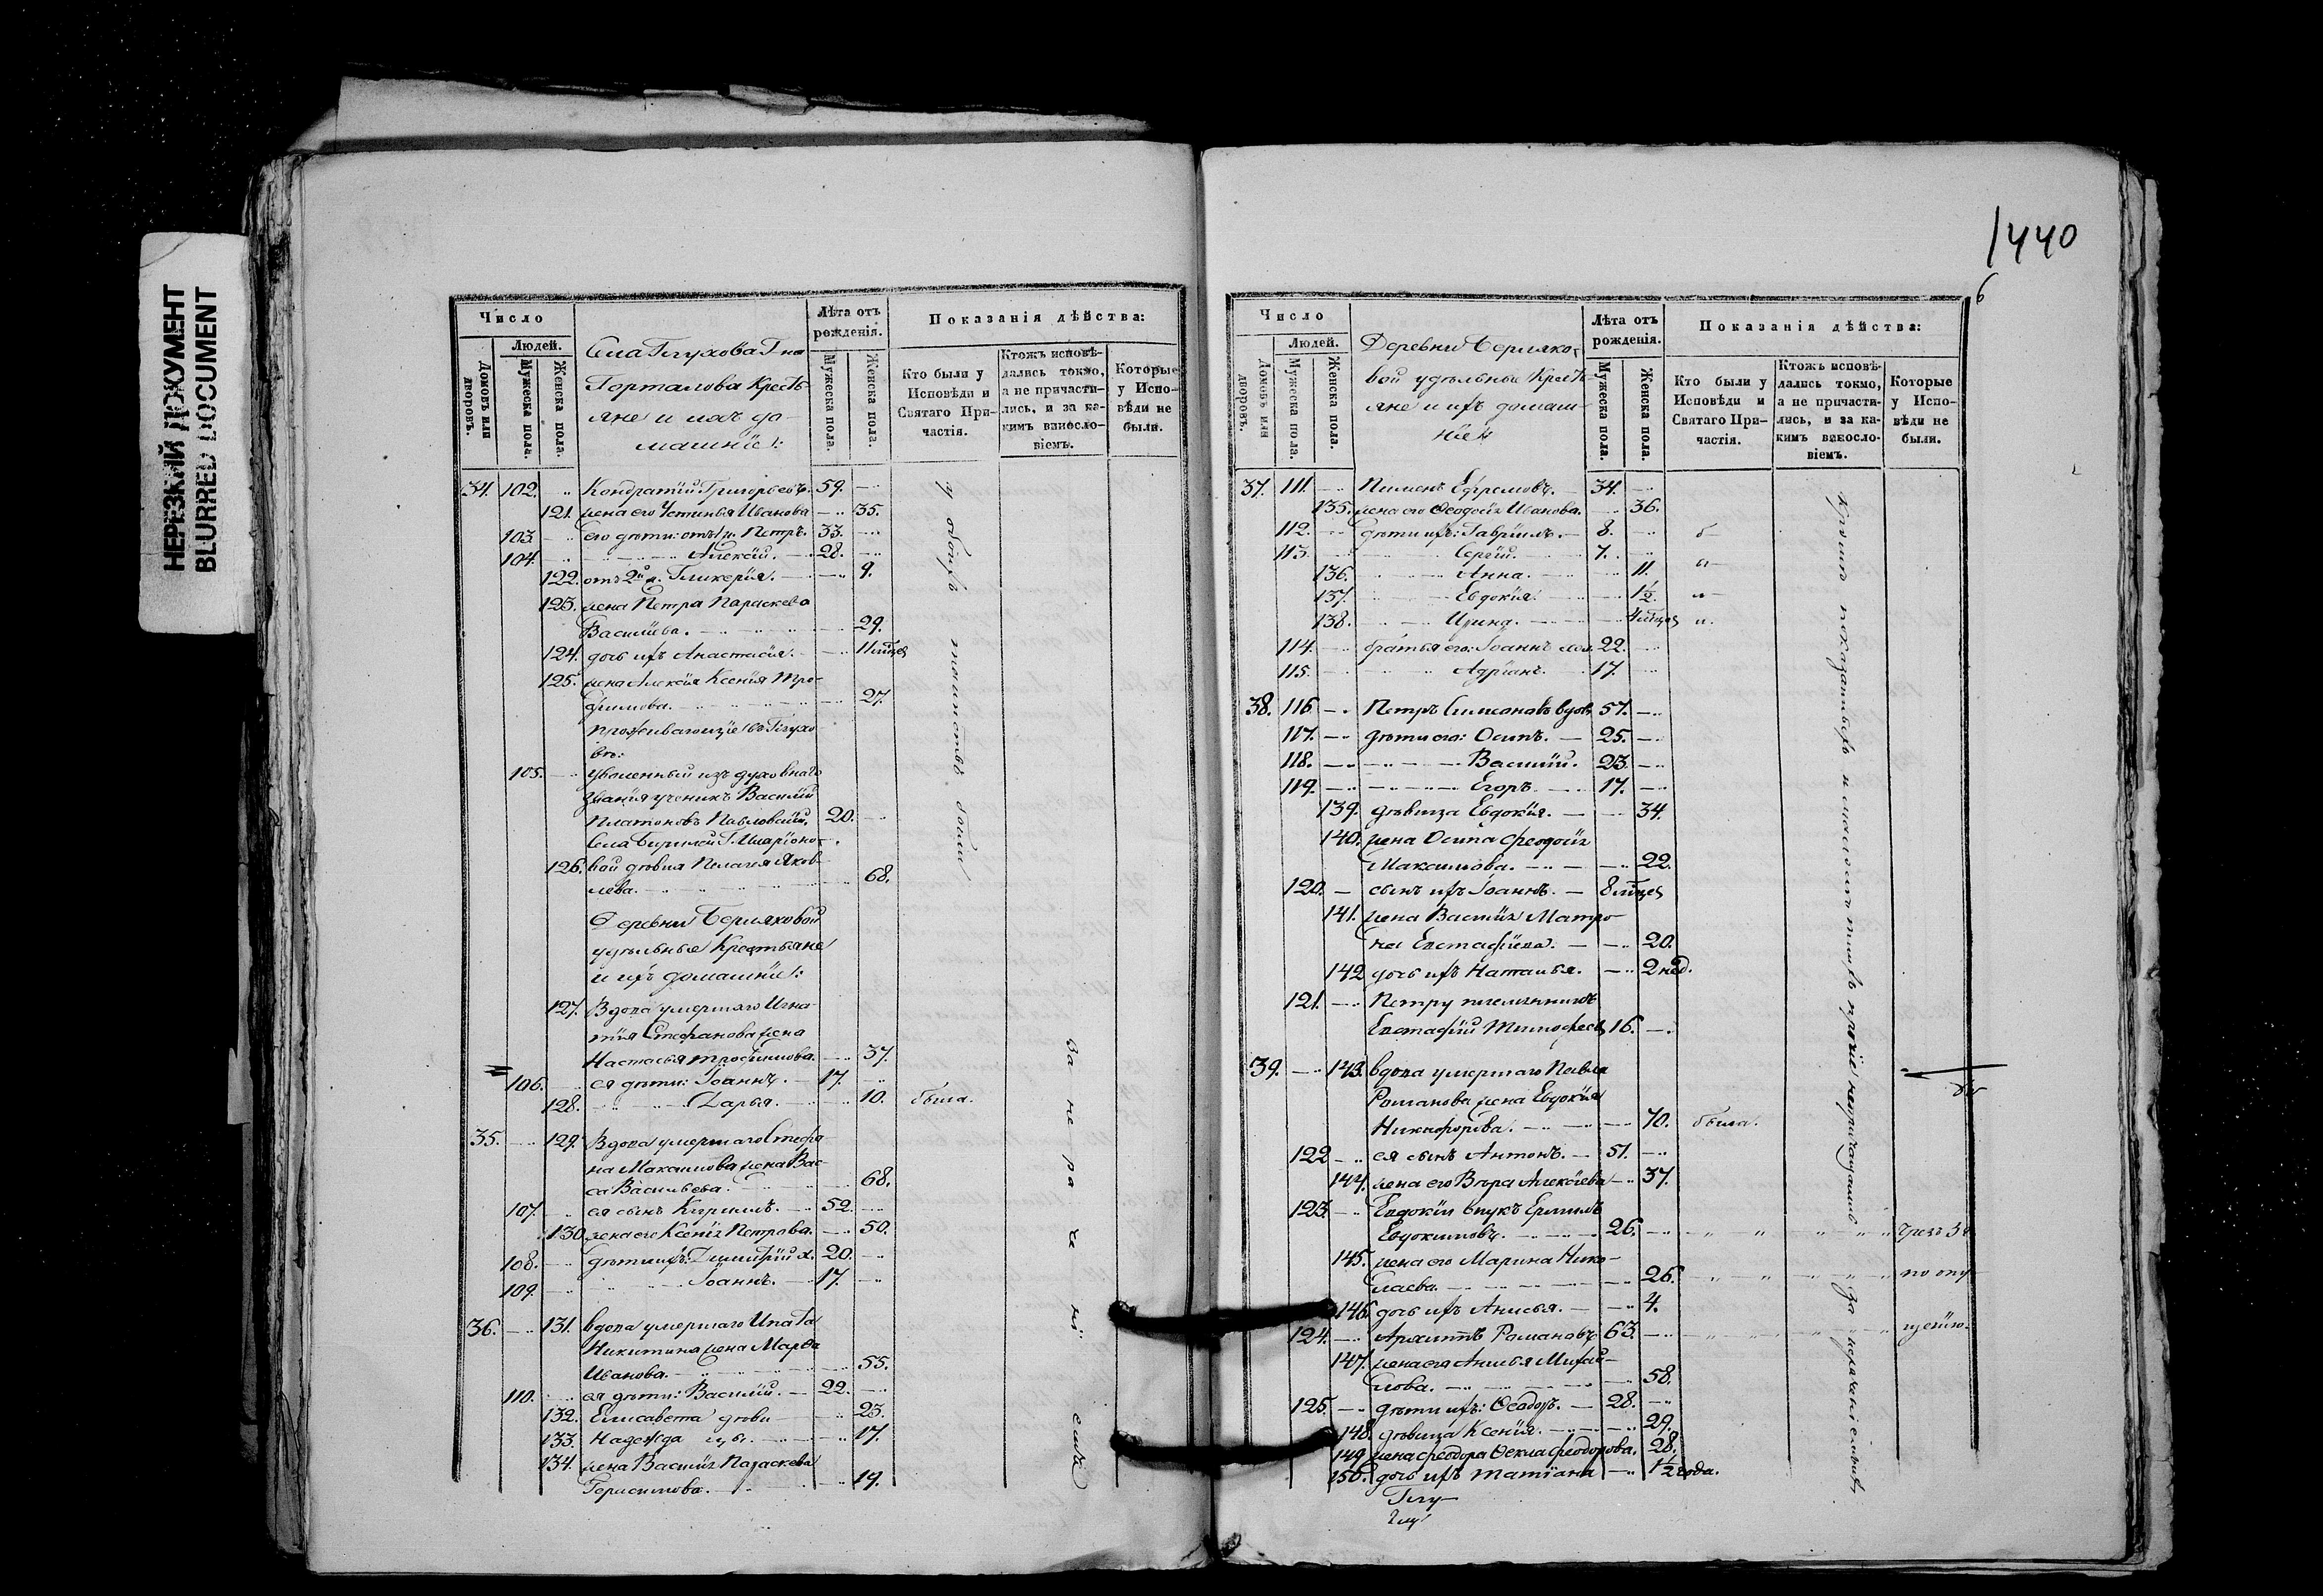 НЕРЕЗКИЙ ДОКУМЕНТ
BLURRED DOCUMENT
Число
Людей.
Домовъ или дворовъ.
Мужеска пола.
Женска пола.
Села Глухова Г на
Горталова Кресть-
яне и ихъ до-
машніе:
Лѣта отъ рожденія.
Мужеска пола.
Женска пола.
Показанія дѣйства:
Кто были у Исповѣди и Святаго При-частія.
Ктожъ исповѣ-дались токмо, а не причасти-лись, и за ка-кимъ винosло-віемъ.
Которые у Испо-вѣди не были.
34. 102. Кондратій Григорьевъ. 59.
121. жена его Устинья Иванова 35.
103. его дѣти: отъ 1й ж. Петръ. 33.
104. Алексѣй. 28.
122. отъ 2й ж. Гликерія. 9.
123. жена Петра Параскева
Васильева. 29.
124. дочь ихъ Анастасія. 11 мѣсяц
125. жена Алексѣя Ксенія Тро-
фимова. 27.
проживающіе въ Глухо
вѣ:
105. уволенный изъ духовнаго
званія ученикъ Василій
Платоновъ Павловскій. 20.
126. вой дѣвица Пелагія Яков-
лева. 68.
Деревни Берляковой
удѣльные Крестьяне
и ихъ домашніе:
127. Вдова умершаго Игна-
тія Стефанова жена
Настасья Трофимова. 37.
106. ея дѣти: Іоаннъ. 17.
128. Дарья. 10. была.
35. 129. Вдова умершаго Стефа
на Максимова жена Вас-
са Васильева. 68.
107. ея сынъ Кириллъ. 52.
130. жена его Ксенія Петрова. 50.
108. дѣти ихъ: Димитрій х. 20.
109. Іоаннъ. 17.
36. 131. вдова умершаго Ипата
Никитина жена Марѳа
Иванова. 55.
110. ея дѣти: Василій. 22.
132. Елисавета дѣви 23.
133. Надежда цы. 17.
134. жена Василія Параскева
Герасимова. 19.
у обоихъ таинствъ были
За нерачніемъ
1440
6
Число
Людей.
Домовъ или дворовъ.
Мужеска пола.
Женска пола.
Деревни Берляко-
вой удѣльные Кресть-
яне и ихъ домаш-
ніе:
Лѣта отъ рожденія.
Мужеска пола.
Женска пола.
Показанія дѣйства:
Кто были у Исповѣди и Святаго При-частія.
Ктожъ исповѣ-дались токмо, а не причасти-лись, и за ка-кимъ винosло-віемъ.
Которые у Испо-вѣди не были.
37. 111. Пименъ Ефремовъ. 34.
135. жена его Ѳеодосія Иванова. 36.
112. дѣти ихъ: Гавріилъ. 8. б
113. Сергій. 7.
136. Анна. 11.
137. Евдокія. 1½.
138. Ирина. 4 мѣсяц
114. братья его: Іоаннъ хол. 22.
115. Адріанъ. 17.
38. 116. Петръ Симеоновъ вдов 57.
117. дѣти его: Осипъ. 25.
118. Василій. 23.
119. Егоръ. 17.
139. дѣвица Евдокія. 34.
140. жена Осипа Феодосія
Максимова. 22.
120. сынъ ихъ Іоаннъ. 8 мѣсяц
141. жена Василія Матро-
на Евстафіева. 20.
142 дочь ихъ Наталья. 2 нед.
121. Петру племянникъ
Евстафій Тимофеев 16.
39. 143. вдова умершаго Павла
Романова жена Евдокія
Никифорова. 70. была.
122 ея сынъ Антонъ. 51.
144. жена его Вѣра Алексіева 37.
123 Евдокіи внукъ Ермилъ
Евдокимовъ. 26. чрезъ
145. жена его Марина Нико-
лаева. 26. по опу-
146. дочь ихъ Анисья. 4.
124. Архиппъ Романовъ 63. щенію.
147. жена его Анисья Михай-
лова. 58.
125. дѣти ихъ: Ѳеодоръ. 28.
148. дѣвица Ксенія. 29.
149. жена Феодора Ѳекла Феодорова. 28.
150. дочь ихъ Татіана 1½ года.
Глу-